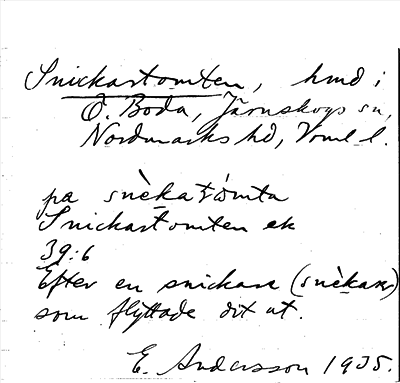 Snickartomten, hmd i
Ö. Boda, Järnskogs sn,
Nordmarks hd, Vrml l.
pa snèkatòmta
Snickartomten ek
39:6
Efter en snickare (snèkar)
som flyttade dit ut.
E. Andersson 1935.